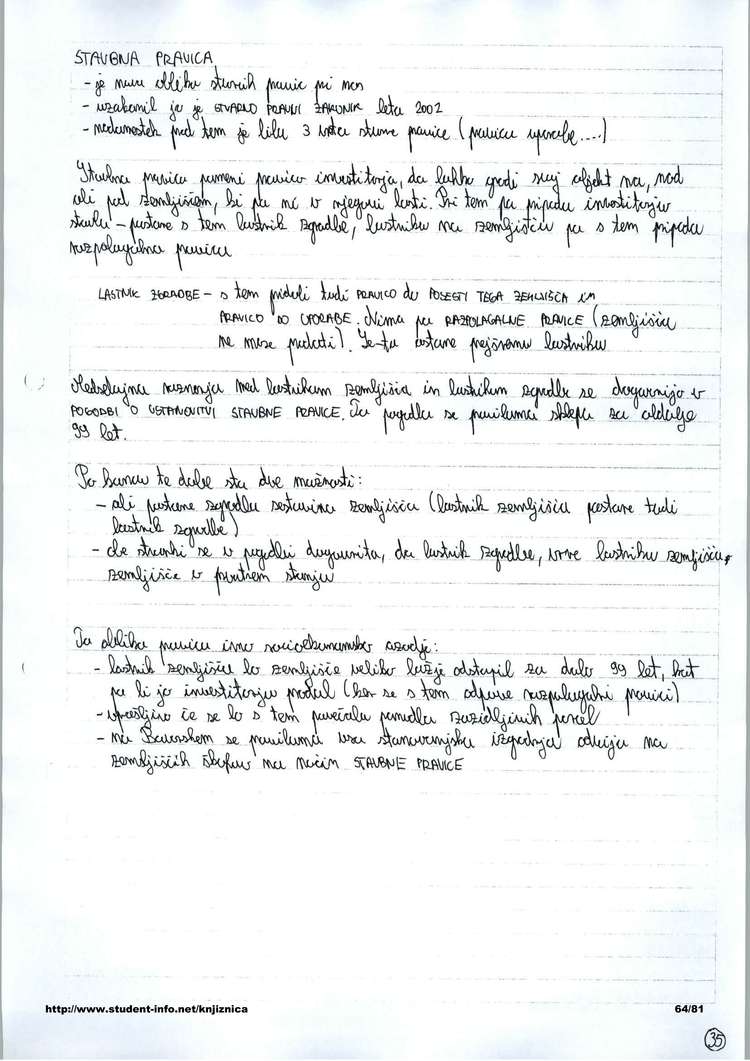 STAVBNA PRAVICA
- je nova oblika stvarnih pravic pri nas
- uzakonil jo je STVARNO PRAVNI ZAKONIK leta 2002
- nadomestek pred tem je bila 3 vrsta stvarne pravice (pravica uporabe....)
Stavbna pravica pomeni pravico investitorja, da lahko gradi svoj objekt na, nad
ali pod zemljiščem, ki pa ni v njegovi lasti. Pri tem pa pripada investitorju
stavba - postane s tem lastnik zgradbe, lastniku na zemljišču pa s tem pripada
razpolagalna pravica
LASTNIK ZGRADBE - s tem pridobi tudi PRAVICO DO POSESTI TEGA ZEMLJIŠČA in
PRAVICO DO UPORABE. Nima pa RAZPOLAGALNE PRAVICE (zemljišča
ne more prodati). Le-ta ostane prejšnemu lastniku
Medsebojna razmerja med lastnikom zemljišča in lastnikom zgradbe se dogovorijo v
POGODBI O USTANOVITVI STAVBNE PRAVICE. Ta pogodba se praviloma sklepa za obdobje
99 let.
Po koncu te dobe sta dve možnosti:
- ali postane zgradba sestavina zemljišča (lastnik zemljišča postane tudi
lastnik zgradbe)
- če stranki se v pogodbi dogovorita, da lastnik zgradbe, vrne lastniku zemljišča,
zemljišče v prvotnem stanju
Ta oblika pravice ima socioekonomsko ozadje:
- lastnik zemljišča bo zemljišče veliko lažje odstopil za dobo 99 let, kot
pa bi jo investitorju prodal (ker se s tem odpove razpolagalni pravici)
- vprašljivo če se bo s tem povečala ponudba zazidljivih parcel
- na Bavarskem se praviloma vsa stanovanjska izgradnja odvija na
zemljiščih škofov na način STAVBNE PRAVICE
http://www.student-info.net/knjiznica
64/81
35